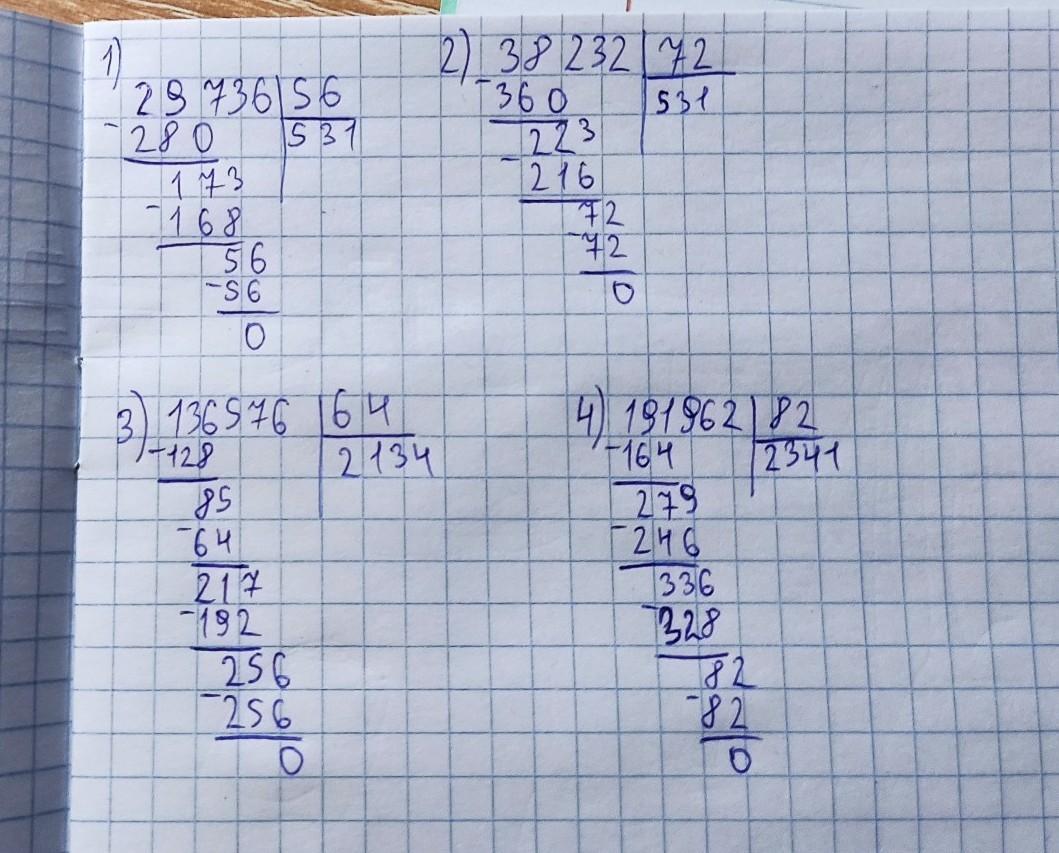 1)
29 736 56
- 280 531
173
- 168
56
- 56
0
2) 38 232 72
- 360 531
223
- 216
72
- 72
0
3) 136576 64
- 128 2134
85
- 64
217
- 192
256
- 256
0
4) 191962 82
- 164 2341
279
- 246
336
- 328
82
- 82
0